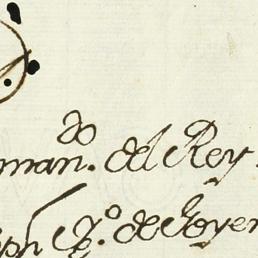 do
man. del Rey
ph Jº. de Hoyer